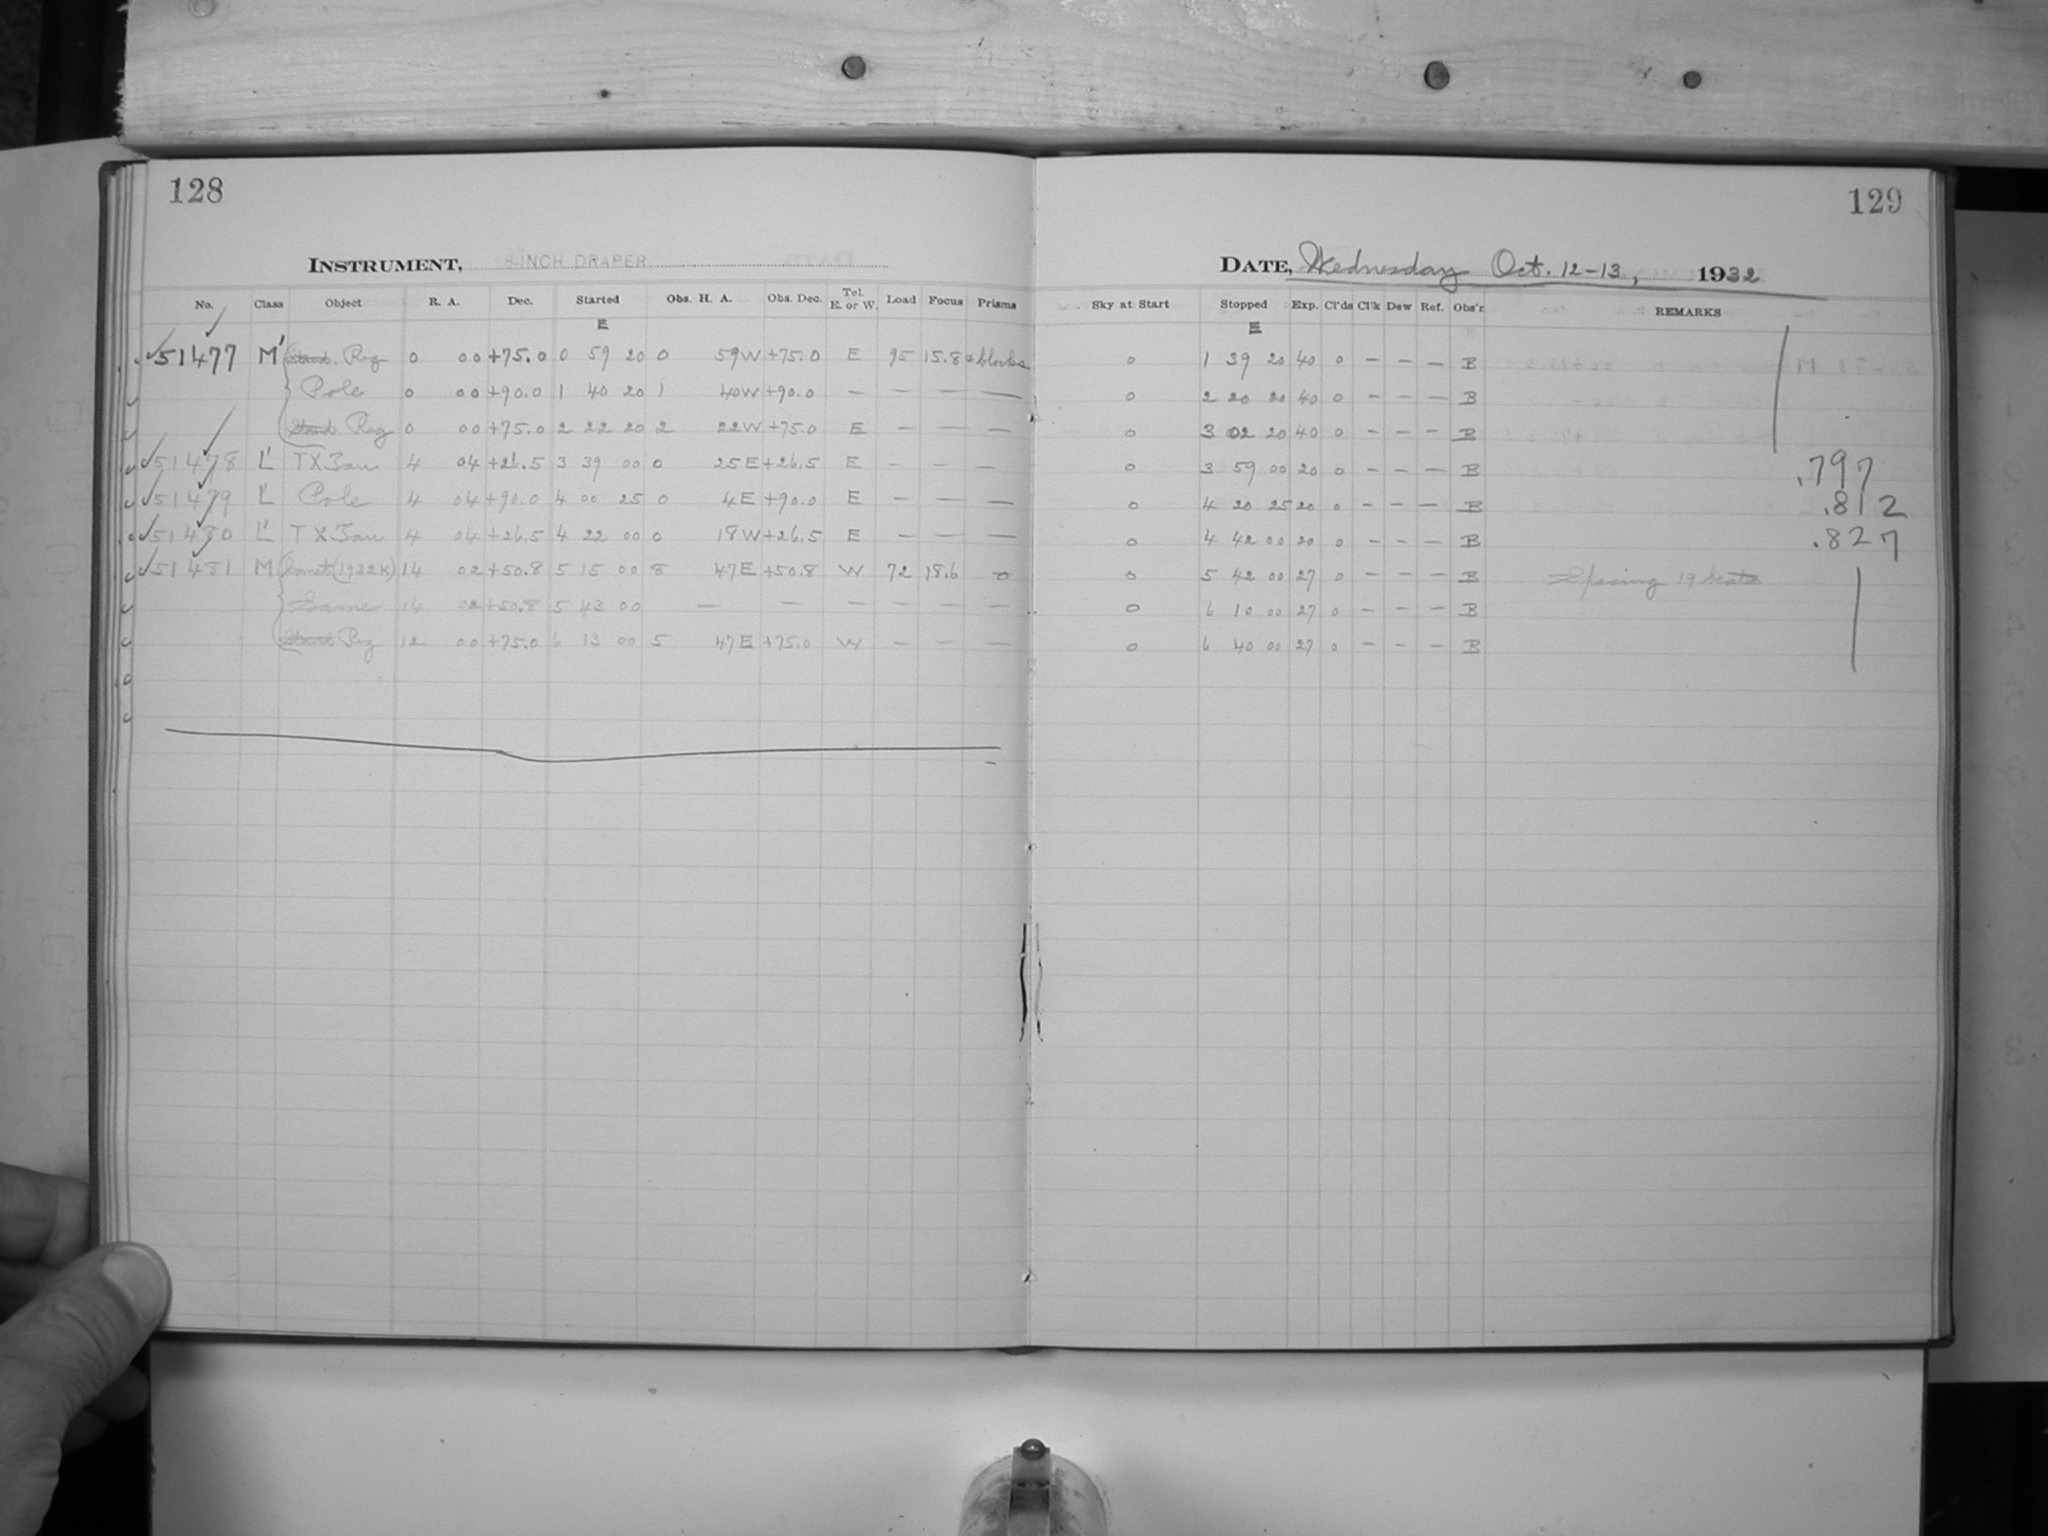 128
INSTRUMENT, 8-INCH DRAPER
No. Class Object R. A. Dec. Started Obs. H. A. Obs. Dec. Tel. E. or W. Load Focus Prisms
E
51477 M' Stand. Reg 0 00 +75.0 0 59 20 0 59W +75.0 E 95 15.8 4 blocks
Pole 0 00 +90.0 1 40 20 1 40W +90.0 — — — —
Stand. Reg 0 00 +75.0 2 22 20 2 22W +75.0 E — — —
51478 L' TX Tau 4 04 +26.5 3 39 00 0 25E +26.5 E — — —
51479 L' Pole 4 04 +90.0 4 00 25 0 4E +90.0 E — — —
51480 L' TX Tau 4 04 +26.5 4 22 00 0 18W +26.5 E — — —
51481 M Comet (1932K) 14 02 +50.8 5 15 00 8 47E +50.8 W 72 18.6 0
Same 14 02 +50.8 5 43 00 — — — — — —
Stand Reg 12 00 +75.0 6 13 00 5 47E +75.0 W — — —
129
DATE, Wednesday Oct. 12-13, 1932
Sky at Start Stopped Exp. Cl'ds Cl'k Dew Ref. Obs'r REMARKS
E
0 1 39 20 40 0 — — — B
0 2 20 20 40 0 — — — B
0 3 02 20 40 0 — — — B
0 3 59 00 20 0 — — — B .797
0 4 20 25 20 0 — — — B .812
0 4 42 00 20 0 — — — B .827
0 5 42 00 27 0 — — — B Spacing 19 beats
0 6 10 00 27 0 — — — B
0 6 40 00 27 0 — — — B